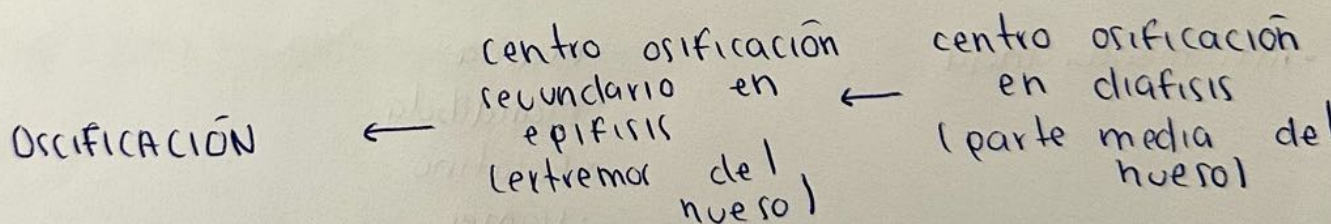 OSCIFICACIÓN
←
centro osificación
secundario en
epifisis
(extremos del
hueso)
←
centro osificación
en diafisis
(parte media del
hueso)